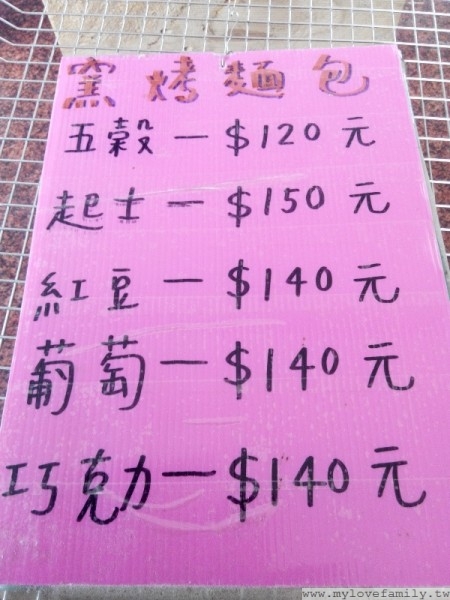 窯烤麵包
五穀—$120元
起士—$150元
紅豆—$140元
葡萄—$140元
巧克力—$140元
www.mylovefamily.tw